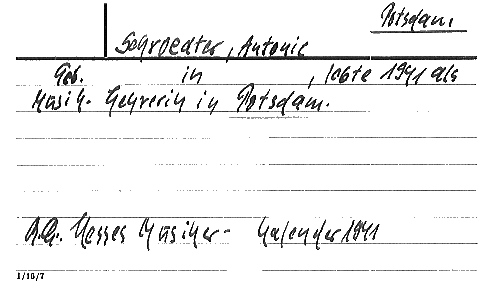 Potsdam.
Schroedter, Antonie
Geb. in , lebte 1941 als
Musik-Lehrerin in Potsdam.
A.G. Hesses Musiker-Kalender 1941
1/16/7